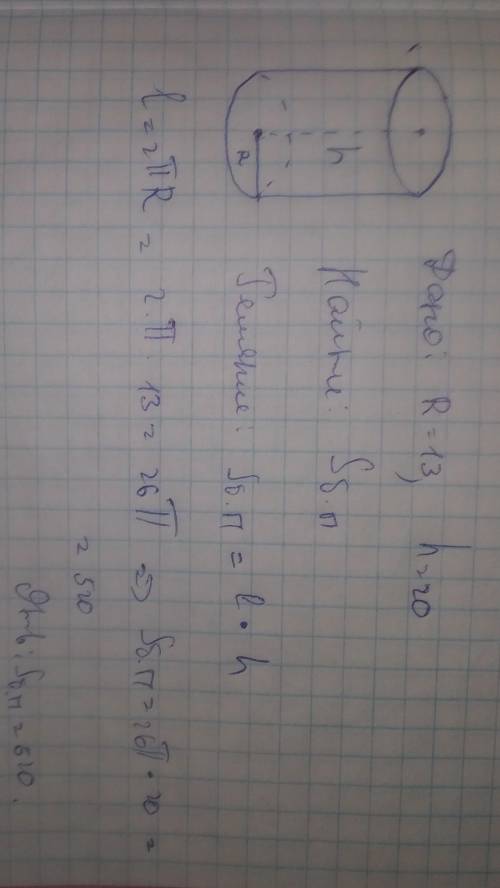 h
R
Дано: R = 13, h = 20
Найти: Sб.п
Решение: Sб.п = l · h
l = 2πR = 2 · π · 13 = 26π => Sб.п = 26π · 20 =
= 520
Ответ: Sб.п = 520.